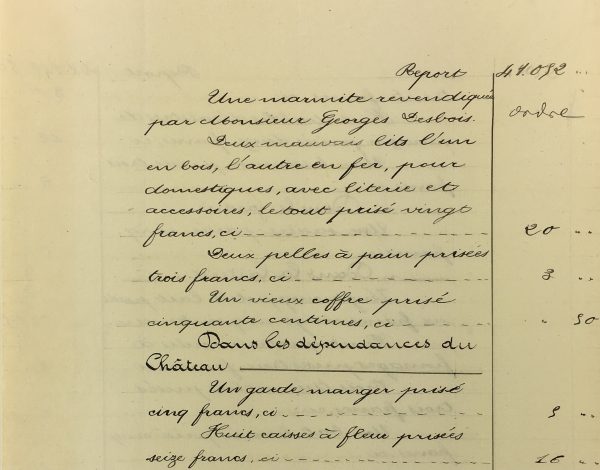 Report 41.092 "
Une marmite revendiquée
par Monsieur Georges Desbois. ordre
Deux mauvais lits l'un
en bois, l'autre en fer, pour
domestiques, avec literie et
accessoires, le tout prisé vingt
francs, ci 20 "
Deux pelles à pain prisées
trois francs, ci 3 "
Un vieux coffre prisé
cinquante centimes, ci " 50
Dans les dépendances du
Château
Un garde manger prisé
cinq francs, ci 5 "
Huit caisses à fleur prisées
seize francs, ci 16 "